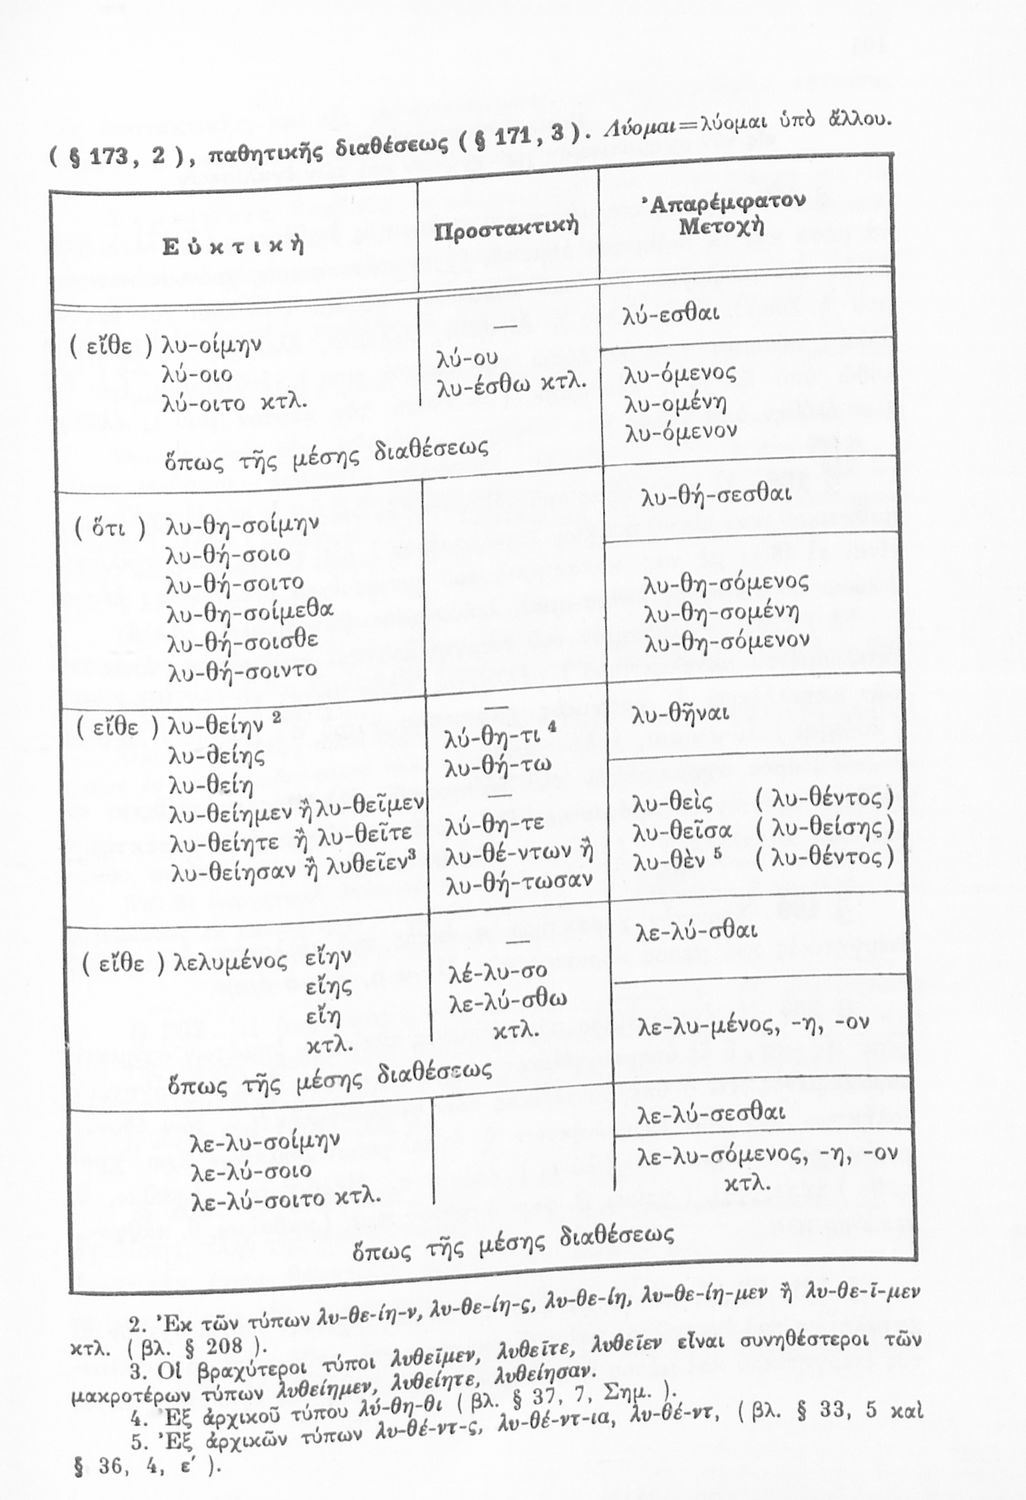 ( § 173, 2 ), παθητικῆς διαθέσεως ( § 171, 3 ). Λύομαι=λύομαι ὑπὸ ἄλλου.
Εὐκτικὴ
Προστακτικὴ
Ἀπαρέμφατον
Μετοχὴ
( εἴθε ) λυ-οίμην
λύ-οιο
λύ-οιτο κτλ.
—
λύ-ου
λυ-έσθω κτλ.
ὅπως τῆς μέσης διαθέσεως
λύ-εσθαι
λυ-όμενος
λυ-ομένη
λυ-όμενον
( ὅτι ) λυ-θη-σοίμην
λυ-θή-σοιο
λυ-θή-σοιτο
λυ-θη-σοίμεθα
λυ-θή-σοισθε
λυ-θή-σοιντο
λυ-θή-σεσθαι
λυ-θη-σόμενος
λυ-θη-σομένη
λυ-θη-σόμενον
( εἴθε ) λυ-θείην ²
λυ-θείης
λυ-θείη
λυ-θείημεν ἢ λυ-θεῖμεν
λυ-θείητε ἢ λυ-θεῖτε
λυ-θείησαν ἢ λυθεῖεν³
—
λύ-θη-τι ⁴
λυ-θή-τω
—
λύ-θη-τε
λυ-θέ-ντων ἢ
λυ-θή-τωσαν
λυ-θῆναι
λυ-θεὶς ( λυ-θέντος )
λυ-θεῖσα ( λυ-θείσης )
λυ-θὲν ⁵ ( λυ-θέντος )
( εἴθε ) λελυμένος εἴην
εἴης
εἴη
κτλ.
—
λέ-λυ-σο
λε-λύ-σθω
κτλ.
ὅπως τῆς μέσης διαθέσεως
λε-λύ-σθαι
λε-λυ-μένος, -η, -ον
λε-λυ-σοίμην
λε-λύ-σοιο
λε-λύ-σοιτο κτλ.
λε-λύ-σεσθαι
λε-λυ-σόμενος, -η, -ον
κτλ.
ὅπως τῆς μέσης διαθέσεως
2. Ἐκ τῶν τύπων λυ-θε-ίη-ν, λυ-θε-ίη-ς, λυ-θε-ίη, λυ-θε-ίη-μεν ἢ λυ-θε-ῖ-μεν
κτλ. ( βλ. § 208 ).
3. Οἱ βραχύτεροι τύποι λυθεῖμεν, λυθεῖτε, λυθεῖεν εἶναι συνηθέστεροι τῶν
μακροτέρων τύπων λυθείημεν, λυθείητε, λυθείησαν.
4. Ἐξ ἀρχικοῦ τύπου λύ-θη-θι ( βλ. § 37, 7, Σημ. ).
5. Ἐξ ἀρχικῶν τύπων λυ-θέ-ντ-ς, λυ-θέ-ντ-ια, λυ-θέ-ντ, ( βλ. § 33, 5 καὶ
§ 36, 4, ε′ ).